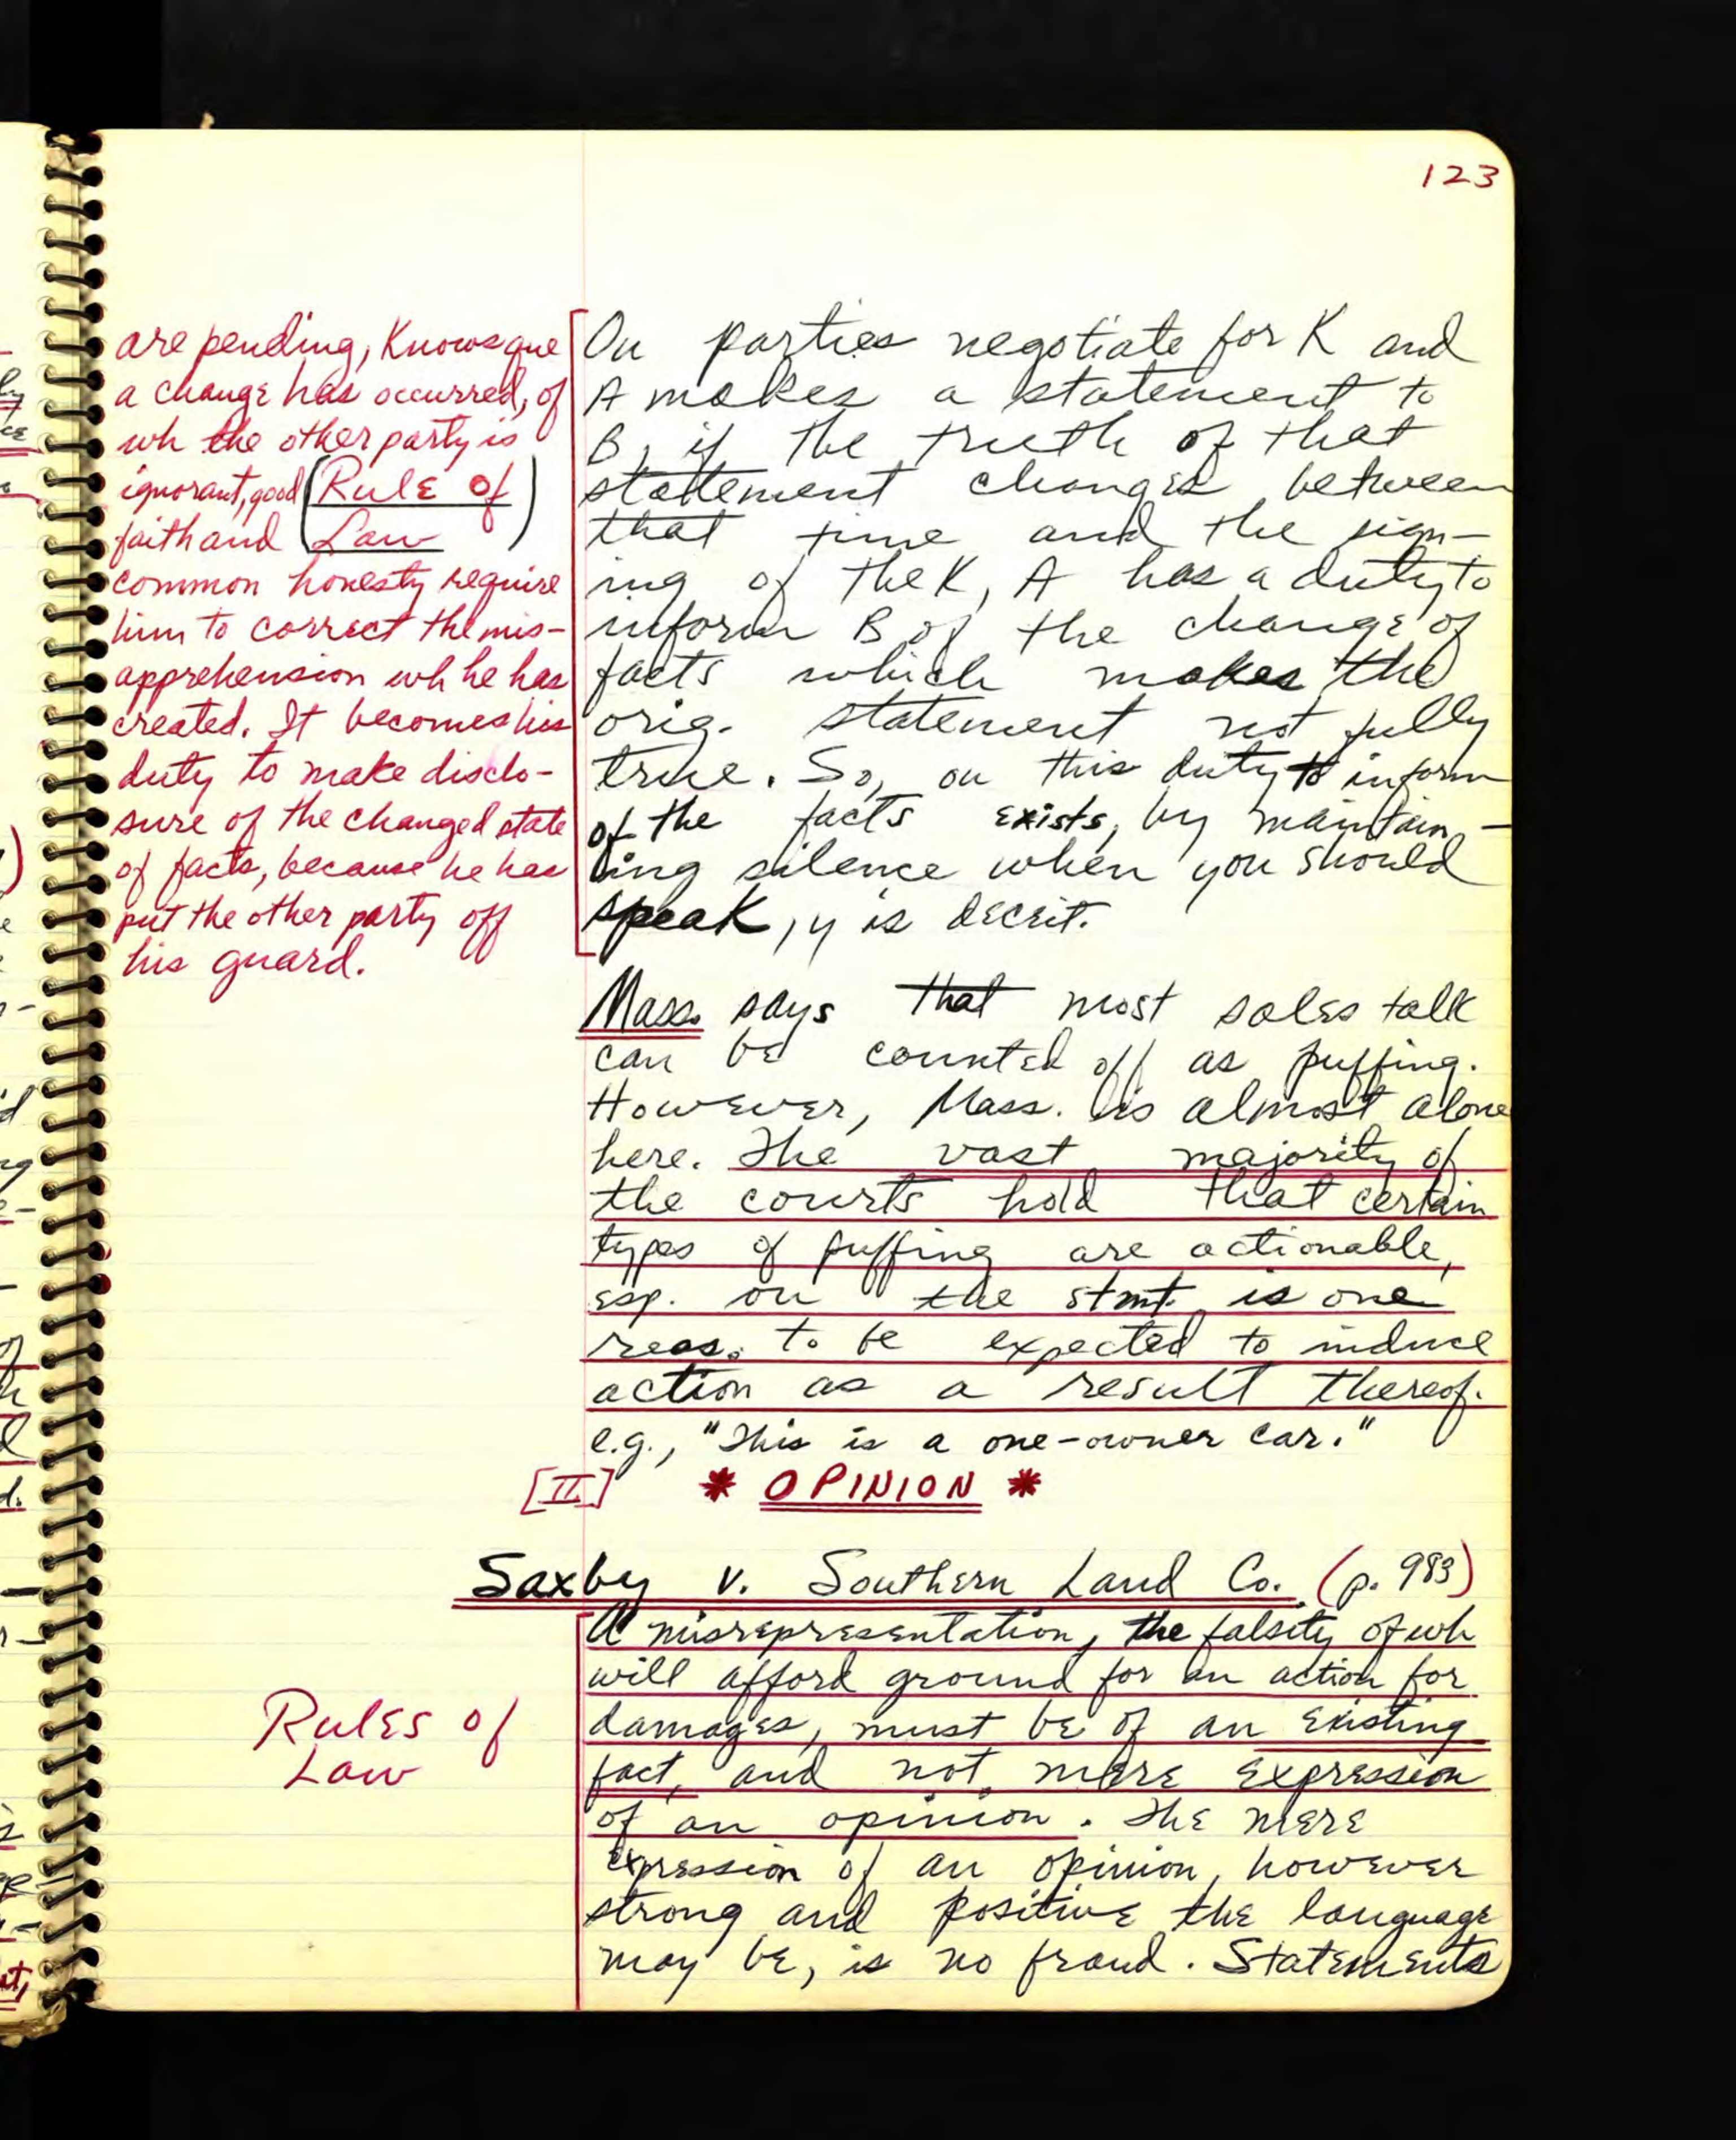 123
are pending, knows que
a change has occurred, of
wh the other party is
ignorant, good (Rule of
faith and Law)
common honesty require
him to correct the mis-
apprehension wh he has
created. It becomes his
duty to make disclo-
sure of the changed state
of facts, because he has
put the other party off
his guard.
Ou parties negotiate for K and
A makes a statement to
B, if the truth of that
statement changes between
that time and the sign-
ing of the K, A has a duty to
inform B of the change of
facts which makes the
orig. statement not fully
true. So, ou this duty to inform
of the facts exists, by maintain-
ing silence when you should
speak, y is deceit.
Mass. says that most sales talk
can be counted off as puffing.
However, Mass. is almost alone
here. The vast majority of
the courts hold that certain
types of puffing are actionable,
esp. ou the stmt. is one
reas. to be expected to induce
action as a result thereof.
e.g., "This is a one-owner car."
[II] * OPINION *
Saxby v. Southern Land Co. (p. 983)
Rules of
Law
A misrepresentation, the falsity of wh
will afford ground for an action for
damages, must be of an existing
fact, and not mere expression
of an opinion. The mere
expression of an opinion, however
strong and positive the language
may be, is no fraud. Statements